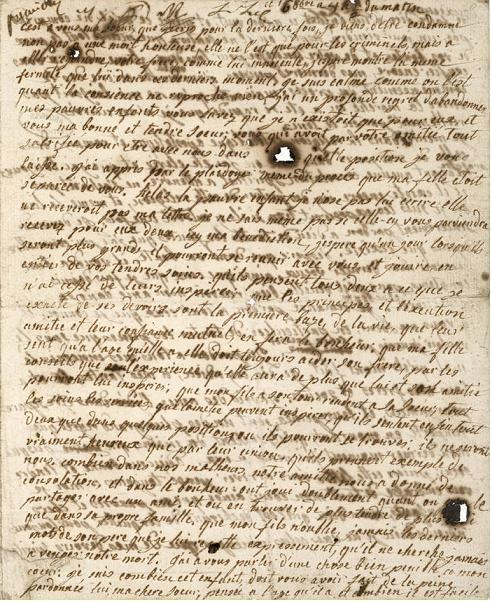 ce 16 8bre a 4 h ½ du matin
C'est a vous, ma Soeur, que j'ecris pour la derniere fois, je viens d'etre condamnée
non pas a une mort honteuse, elle ne l'est que pour les criminels, mais a
aller rejoindre votre frere, comme lui innocente, j'espere montrer la meme
fermeté que lui dans ces derniers moments. je suis calme comme on l'est
quand la conscience ne reproche rien, j'ai un profond regret d'abandonner
mes pauvres enfants, vous savez que je n'existoit que pour eux, et
vous ma bonne et tendre Soeur, vous qui avez par votre amitié tout
sacrifié pour etre avec nous, dans quelle position je vous
laisse, j'ai appris par le plaidoyer meme du procés que ma fille etoit
separée de vous. helas la pauvre enfant je n'ose pas lui ecrire elle
ne receveroit pas ma lettre je ne sais meme pas si celle-ci vous parviendra
recevez pour eux deux ici ma benediction, j'espere qu'un jour lorsqu'ils
seront plus grands, ils pouront se reunir avec vous, et jouir en
entier de vos tendres soins, qu'ils pensent tous deux a ce que je
n'ai cessé de leurs inspirer, que les principes, et l'execution
exacte de ses devoirs sont la premiere baze de la vie, que leur
amitié et leur confiance mutuel, en fera le bonheur, que ma fille
sent qu'a l'age qu'elle a, elle doit toujours aider son frere par les
conseils que experience qu'elle aura de plus que lui et son amitié
pouront lui inspirer, que mon fils a son tour, rendent a sa soeur, tout
les soins, les services que l'amitié peuvent inspirer, qu'ils sentent enfin tout
deux que dans quelques positions ou ils pouront se trouver, ils ne seront
vraiment heureux que par leur union, qu'ils prennent exemple de
nous, combien dans nos malheurs, notre amitié nous a donné de
consolation, et dans le bonheur on jouit doublement quand on
partager avec un ami, et ou en trouver de plus tendre de plus
que dans sa propre famille, que mon fils n'oublie jamais les derniers
mots de son pere que je lui repette expressement, qu'il ne cherche jamais
a venger notre mort. j'ai a vous parler d'une chose bien penible a mon
coeur. je sais combien cet enfant, doit vous avoir fait de la peine,
pardonnés lui, ma chere Soeur, pensez a l'age qu'il a, et combien il est facile